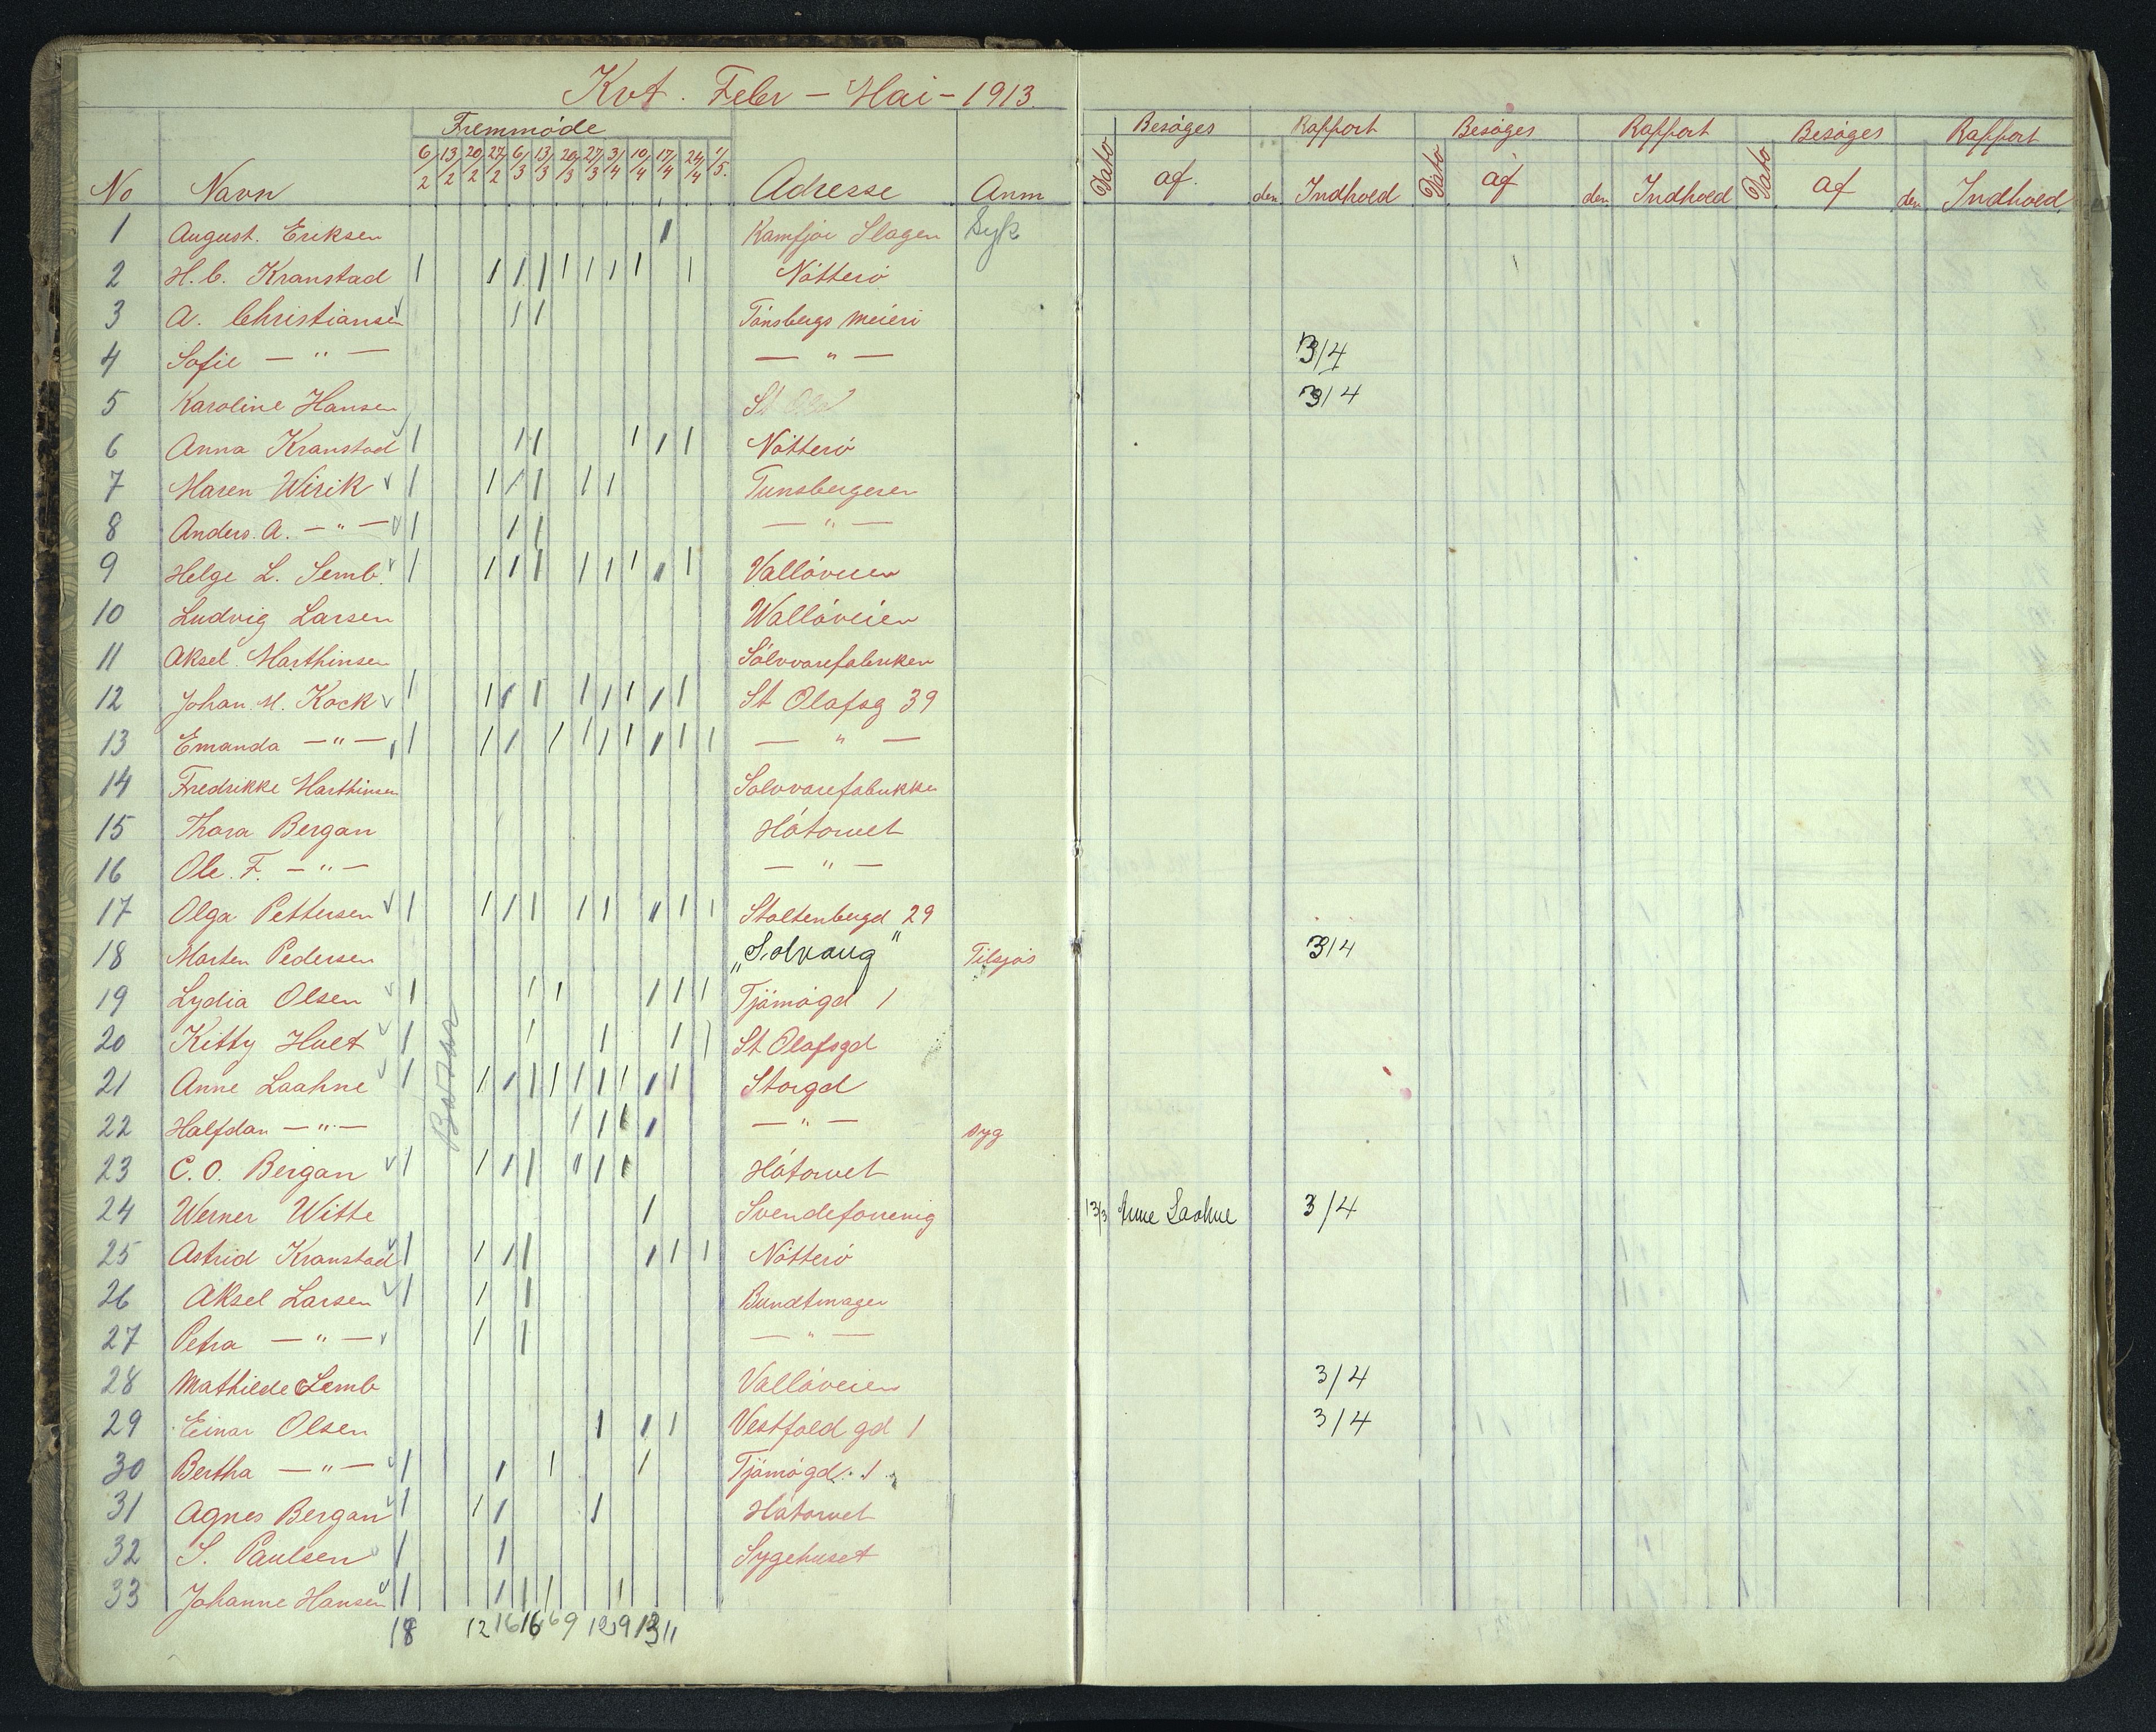 Kvt. Febr - Mai - 1913
Fremmöde
6/2 13/2 20/2 27/2 6/3 13/3 20/3 27/3 3/4 10/4 17/4 24/4 1/5.
No Navn Adresse Anm
1 August. Eriksen Kamfjor Slagen Syk
2 H. C. Kranstad Nötterö
3 A. Christiansen Tönsbergs Meieri
4 Sofie — " — — " —
5 Karoline Hansen St
6 Anna Kranstad Nötterö
7 Maren Wirik Tunsbergeren
8 Anders. A. — " — — " —
9 Helge L. Semb. Vallöveien
10 Ludvig Larsen Wallöveien
11 Aksel Marthinsen Sölvvarefabriken
12 Johan. M. Kock St Olafsg 39
13 Emanda — " — — " —
14 Fredrikke Marthinsen Sölvvarefabrikken
15 Thora Bergan Hötorvet
16 Ole. F. — " — — " —
17 Olga Pettersen Stoltenbergd 29
18 Marten Pedersen „Solvang" Tilsjös
19 Lydia Olsen Tjömögd 1
20 Kitty Huet St Olafsgd
21 Anne Laahne Storgd
22 Halfdan — " — — " — syg
23 C. O. Bergan Hötorvet
24 Werner Witte Svendeforening
25 Astrid Kranstad Nötterö
26 Aksel Larsen Bundtmager
27 Petra — " — — " —
28 Mathilde Semb Vallöveien
29 Einar Olsen Vestfold gd 1
30 Bertha — " — Tjömögd. 1
31 Agnes Bergan Hötorvet
32 S. Paulsen Sygehuset
33 Johanne Hansen
Bazar
18 12 16 16 6 9 12 9 13 11
Besöges Rapport Besöges Rapport Besöges Rapport
Dato af. den Indhold Dato af den Indhold Dato af den Indhold
3/4
3/4
3/4
13/3 Anne Laahne 3/4
3/4
3/4